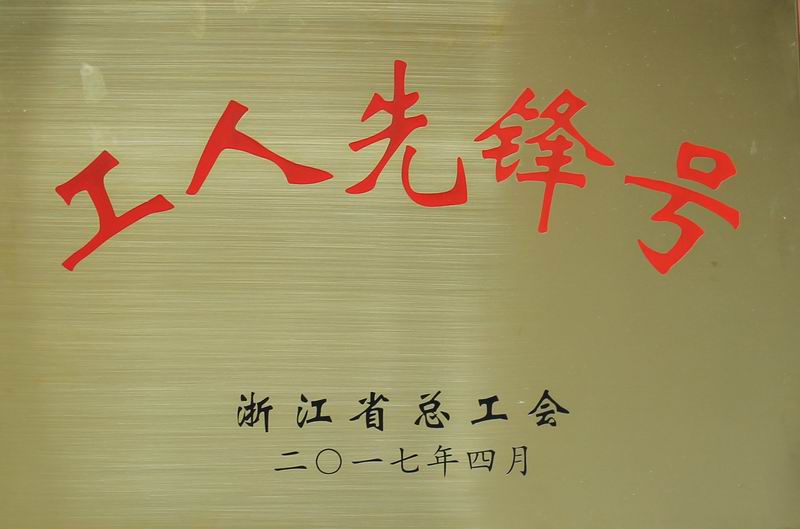 工人先锋号
浙江省总工会
二〇一七年四月